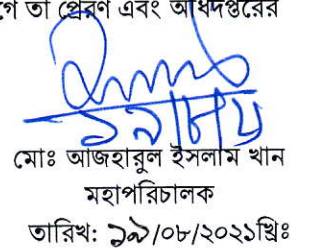 তা প্রেরণ এবং অধিদপ্তরের
মোঃ আজহারুল ইসলাম খান
মহাপরিচালক
তারিখ: ১৯/০৮/২০২১খ্রিঃ